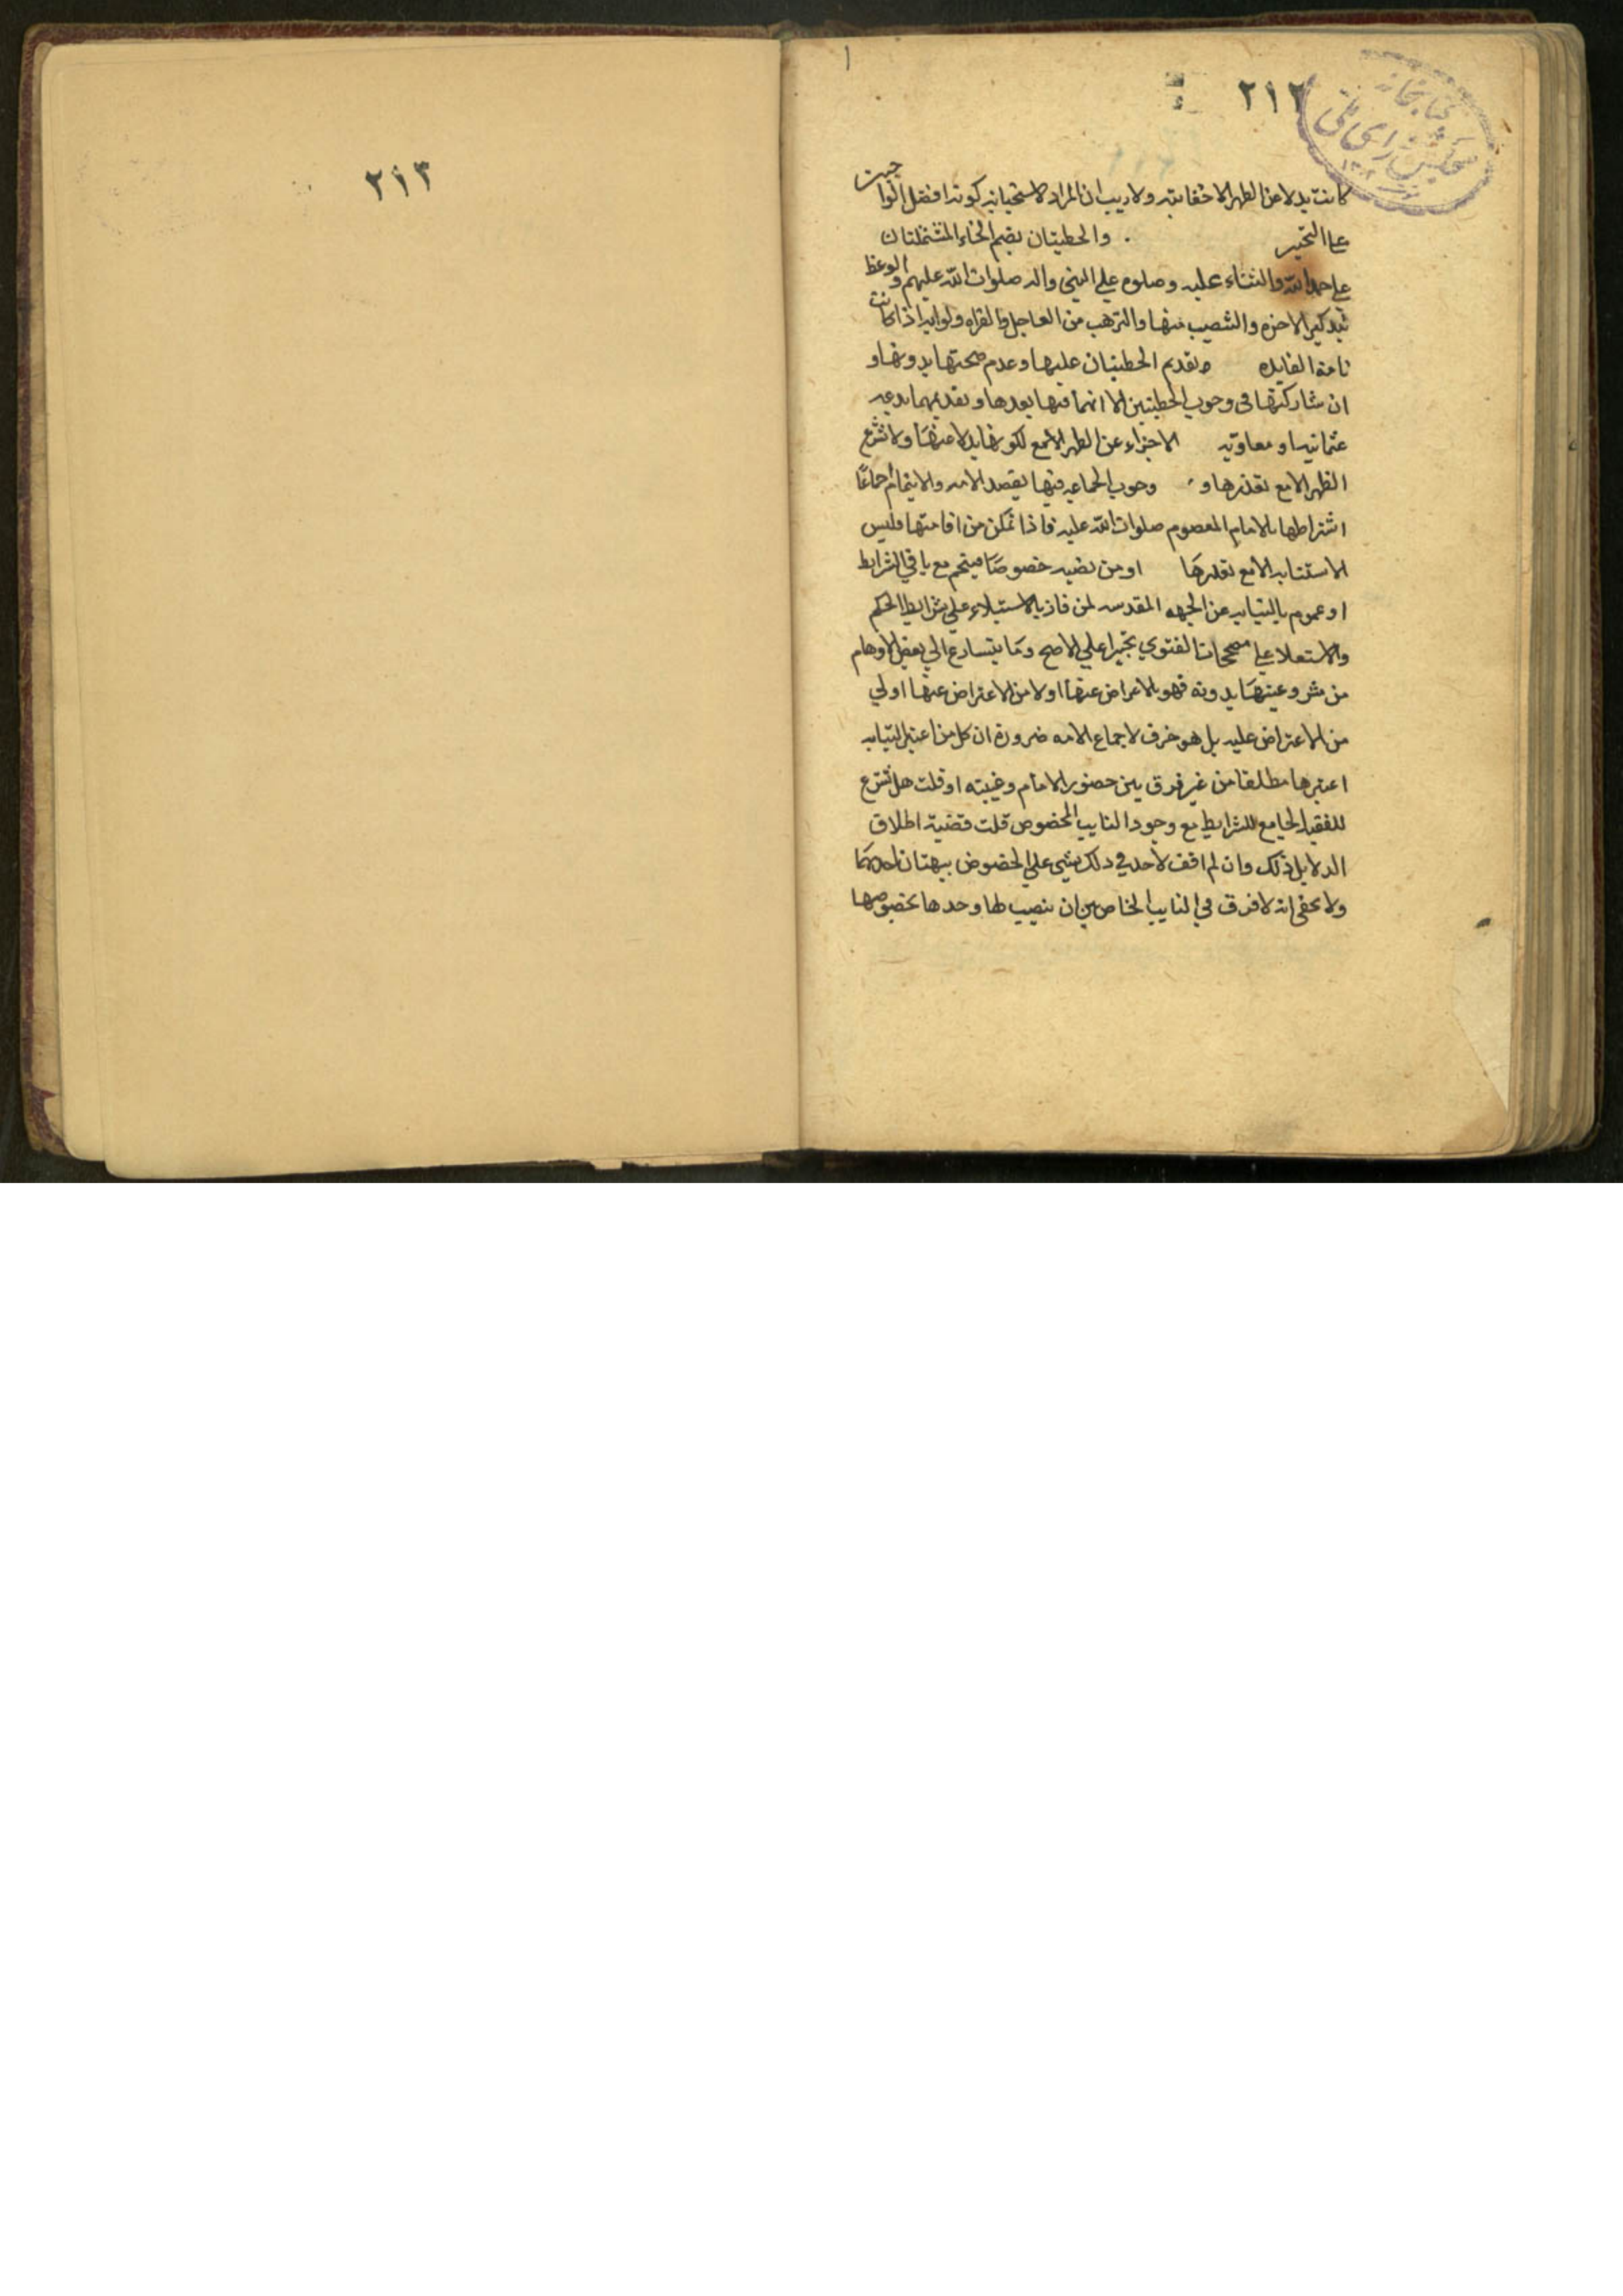 ١
٢١٢
كتابخانه
مجلس شورای ملی
كانت بدلا من الظهر الاخفاتيه ولاريب ان المراد لاستحبابه كونه افضل الواجبين
على التخيير والخطبتان بضم الخاء المشتملتان
على حمد الله والثناء عليه وصلوه على النبي واله صلوات الله عليهم والوعظ
بتذكير الاخره والترهب من العاجل والقراه ولو ايه اذا كانت
تامة الفايده وتقديم الخطبتان عليها وعدم صحتها بدونها و
ان شاركتها في وجوب الخطبتين الا انهما فيها بعدها وتقديمهما بدعه
عثمانيه او معاويه الاجزاء عن الظهر الاجمع لكونها بدلا عنها ولا تشرع
الظهر الا مع تعذرها و وجوب الجماعه فيها بقصد الامه والايتمام جماعا
اشتراطها بالامام المعصوم صلوات الله عليه فاذا تمكن من اقامتها فليس
الاستنابه الا مع تعذرها او من نصبه خصوصا فيتحم مع باقي الشرايط
او عموم بالنيابه عن الجهه المقدسه لمن فاز بالاستيلاء على شرايط الحكم
والاستعلا على مصححات الفتوي تخيرا علي الاصح وما يتسارع الي بعض الاوهام
من مشروعيتها بدونه فهو بالاعراض عنها اولا من الاعتراض عنها اولي
من الاعتراض عليه بل هو خرق لاجماع الامه ضرورة ان كل من اعتبر النيابه
اعتبرها مطلقا من غير فرق بين حضور الامام وغيبته او قلت هل تشرع
للفقيه الجامع للشرايط مع وجود النايب المخصوص قلت قضية اطلاق
الدلايل ذلك وان لم اقف لاحد في ذلك بشي علي الخصوص
ولا يخفي انه لا فرق في النايب الخاص بين ان ينصب لها وحدها بخصوصها
٢١٣